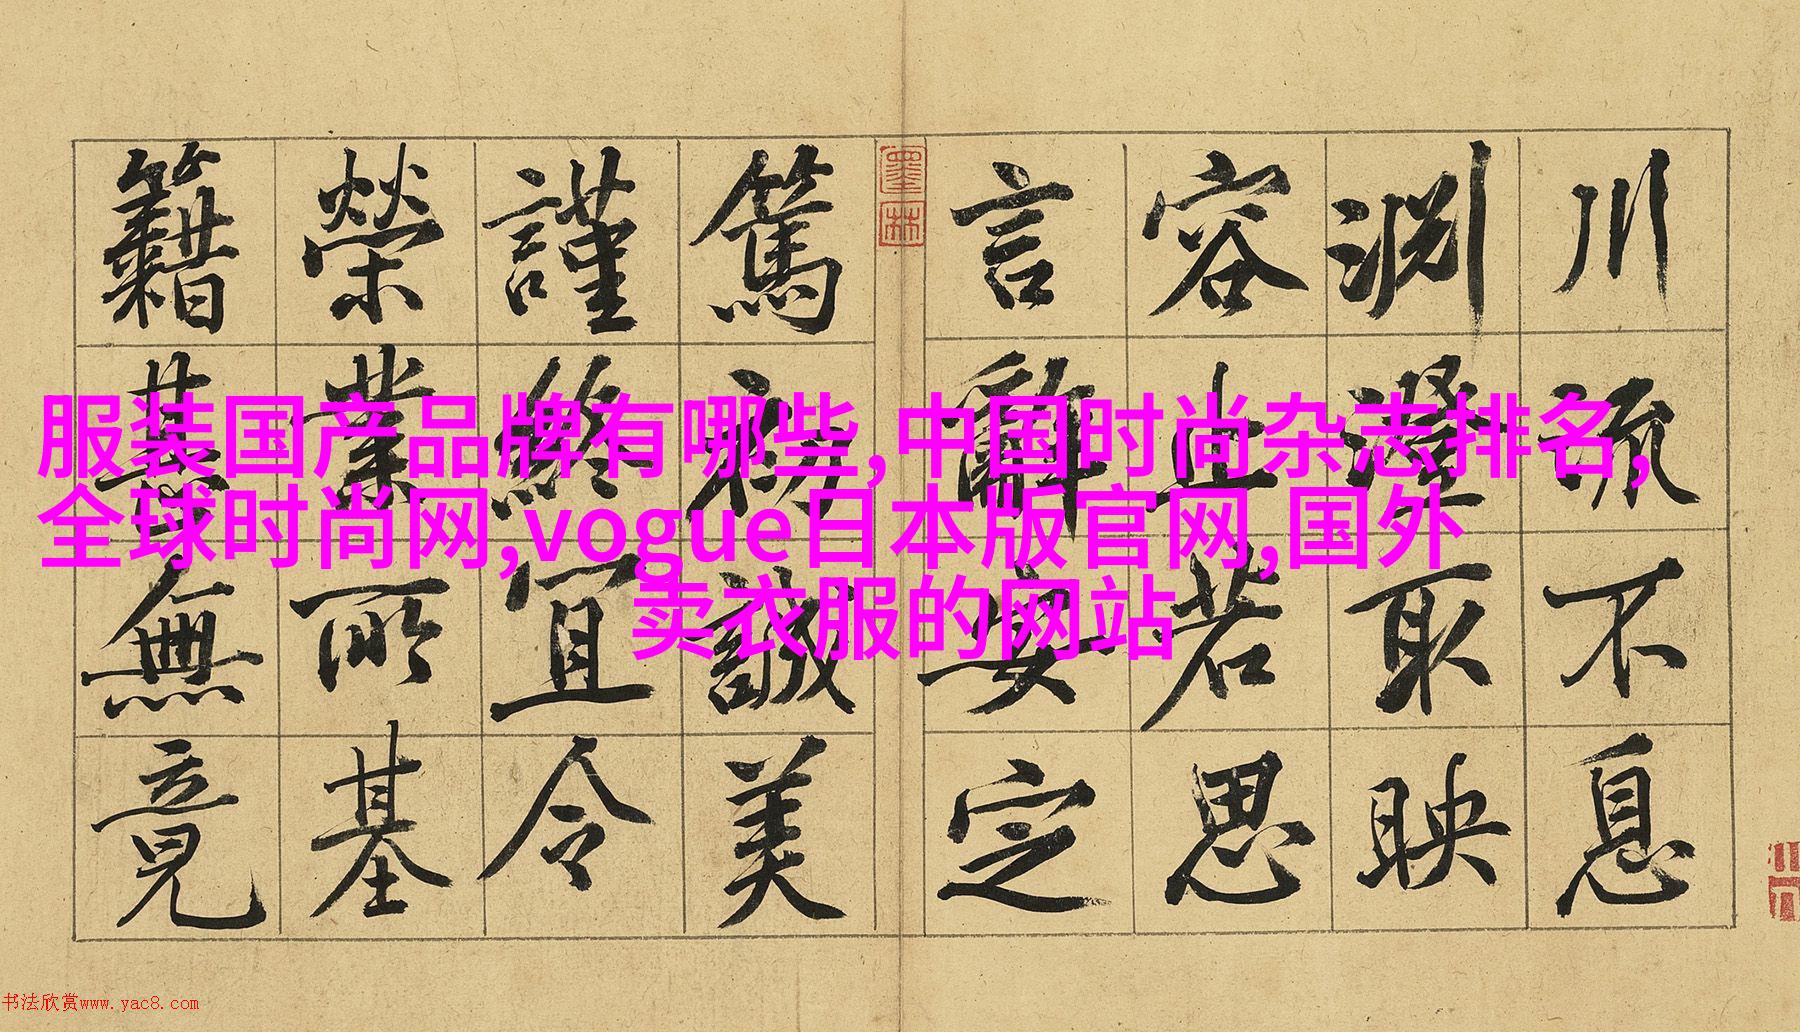 服装国产品牌有哪些,中国时尚杂志排名,
全球时尚网,vogue日本版官网,国外
卖衣服的网站
川流不息
渊澄取映
容止若思
言辭安定
篤初誠美
謹終宜令
榮業所基
籍甚無竟
墨林
书法欣赏www.yac8.com